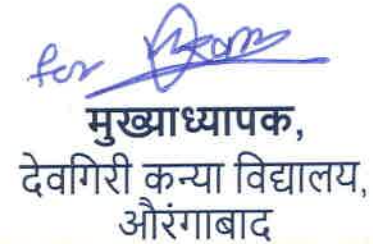 for
मुख्याध्यापक,
देवगिरी कन्या विद्यालय,
औरंगाबाद